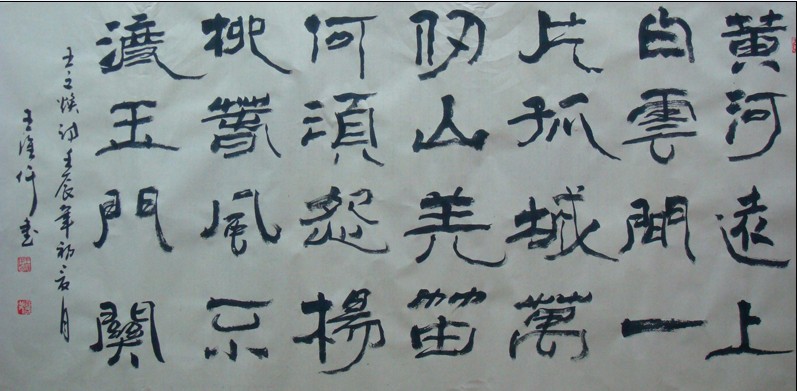 黄河遠上
白雲間一
片孤城萬
仞山羌笛
何須怨楊
柳春風不
渡玉門關
王之焕詩壬辰年初月
王書